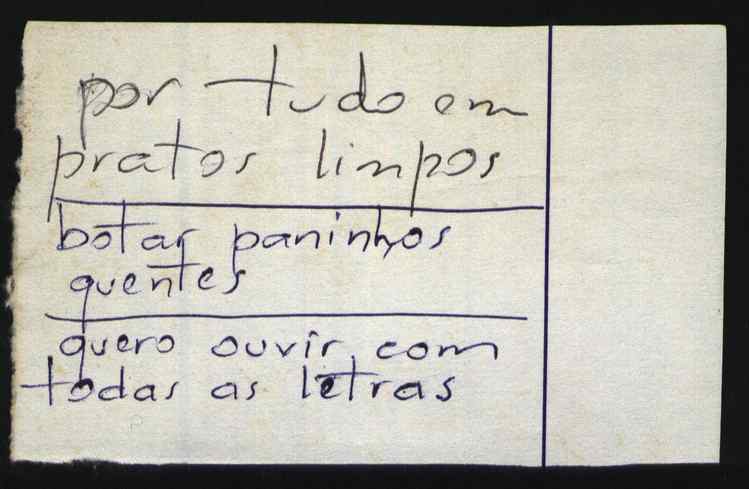 por tudo em
pratos limpos
botar paninhos
quentes
quero ouvir com
todas as letras